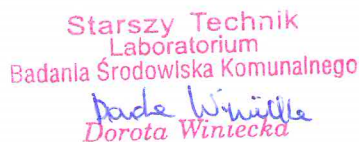 Starszy Technik
Laboratorium
Badania Środowiska Komunalnego
Dorota Winiecka